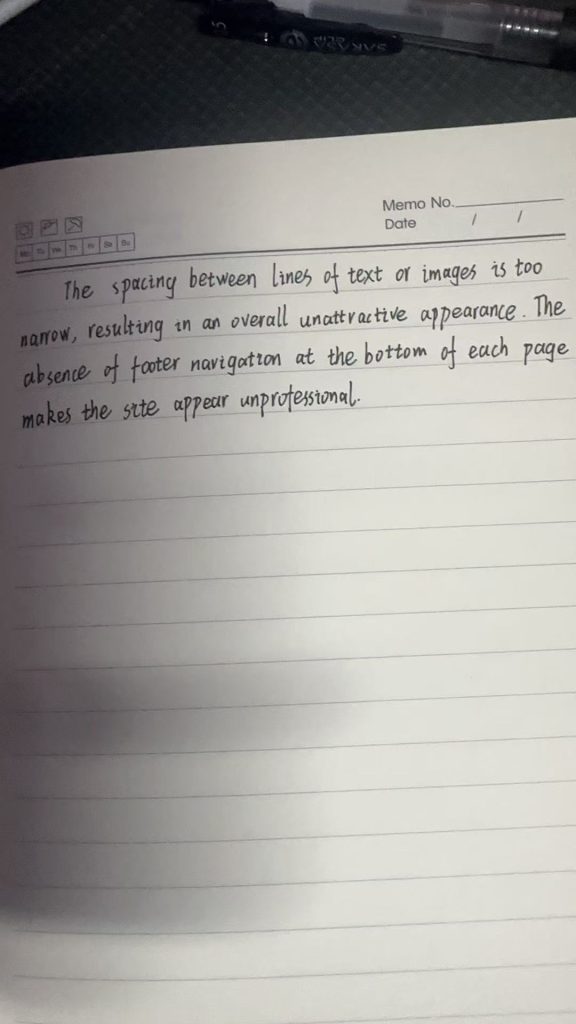 SAKASA
Memo No.
Date / /
Mo Tu We Th Fr Sa Su
The spacing between lines of text or images is too
narrow, resulting in an overall unattractive appearance. The
absence of footer navigation at the bottom of each page
makes the site appear unprofessional.